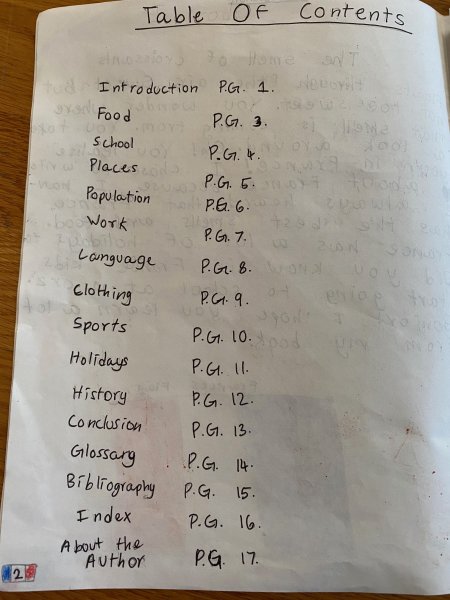 Table OF Contents
Introduction P.G. 1.
Food P.G. 3.
School P.G. 4.
Places P.G. 5.
Population P.G. 6.
Work P.G. 7.
Language P.G. 8.
Clothing P.G. 9.
Sports P.G. 10.
Holidays P.G. 11.
History P.G. 12.
Conclusion P.G. 13.
Glossary P.G. 14.
Bibliography P.G. 15.
Index P.G. 16.
About the
Author P.G. 17.
2